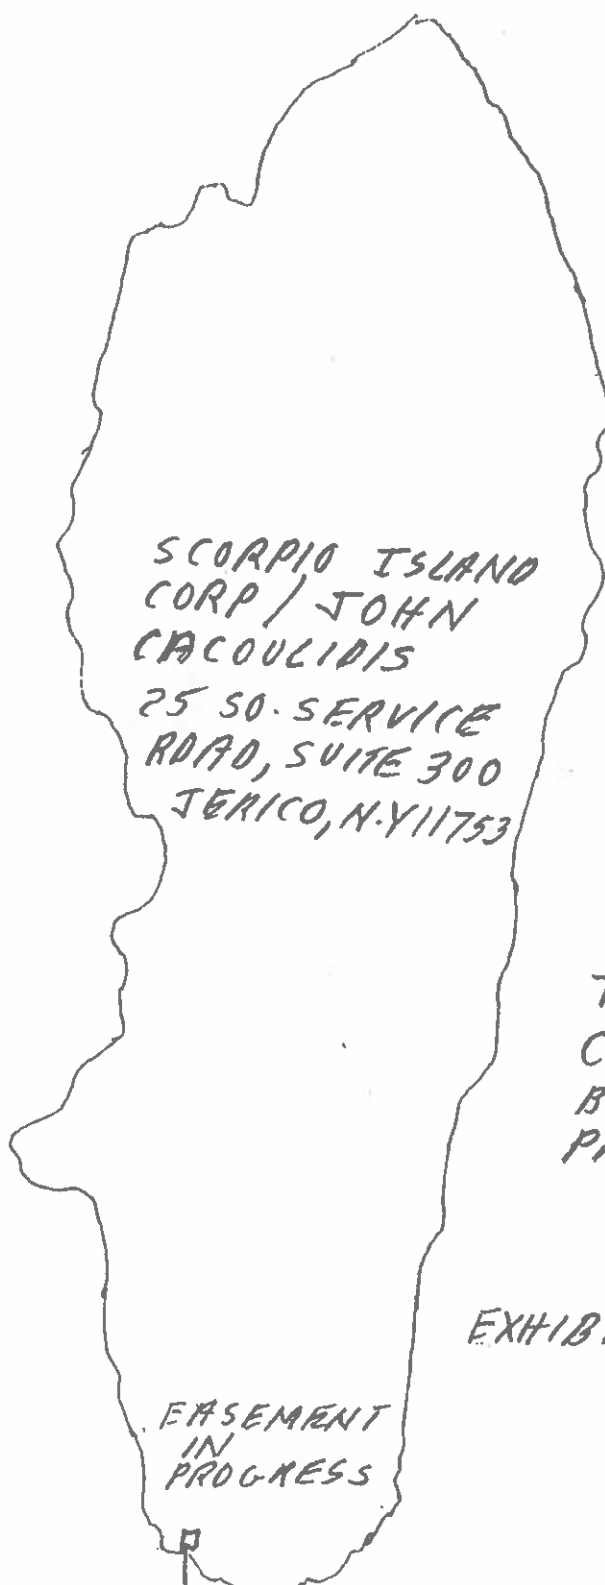 SCORPIO ISLAND
CORP / JOHN
CACOULIDIS
25 SO. SERVICE
ROAD, SUITE 300
JERICO, N.Y 11753
T
C
B
PA
EXHIB
EASEMENT
IN
PROGRESS